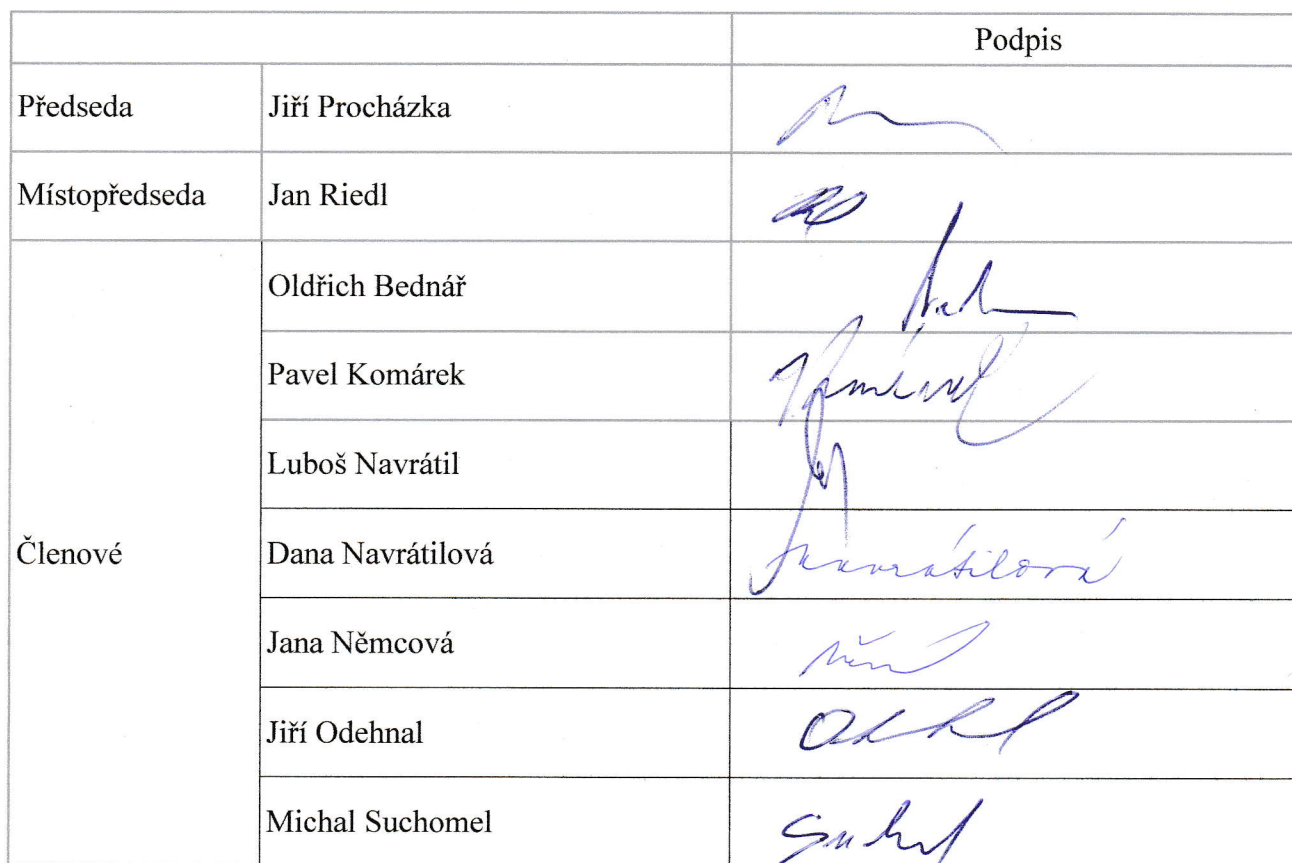 Podpis
Předseda Jiří Procházka
Místopředseda Jan Riedl
Oldřich Bednář
Pavel Komárek
Luboš Navrátil
Členové Dana Navrátilová Navrátilová
Jana Němcová
Jiří Odehnal
Michal Suchomel